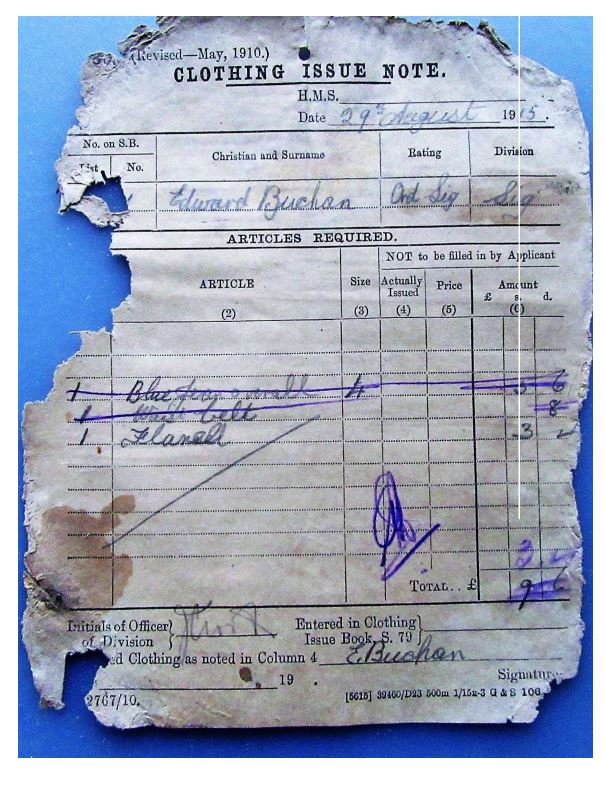 (Revised—May, 1910.)
CLOTHING ISSUE NOTE.
H.M.S.
Date 29th August 1915.
No. on S.B.
List No. Christian and Surname Rating Division
Edward Buchan Ord Sig Sig
ARTICLES REQUIRED.
NOT to be filled in by Applicant
ARTICLE Size Actually Issued Price Amount
£ s. d.
(2) (3) (4) (5) (6)
1 Blue 4 5 6
1 belt 8
1 Flanel 3
TOTAL.. £ 9 6
Initials of Officer of Division } Entered in Clothing Issue Book, S. 79 }
ed Clothing as noted in Column 4 E. Buchan
Signature
19 .
2767/10. [5615] 39460/D23 500m 1/15R-3 G & S 106